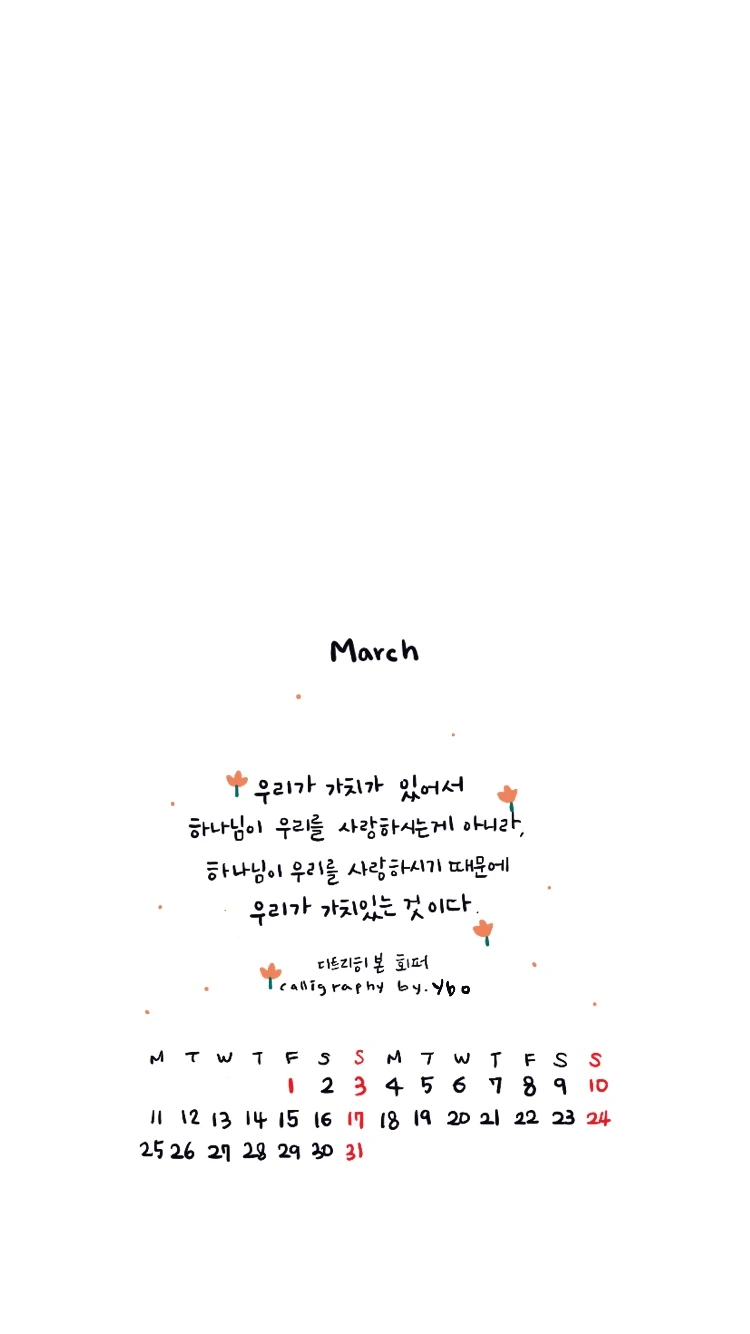 March
우리가 가치가 있어서
하나님이 우리를 사랑하시는게 아니라,
하나님이 우리를 사랑하시기 때문에
우리가 가치있는 것이다.
디트리히 본 회퍼
calligraphy by. ybo
M T W T F S S M T W T F S S
1 2 3 4 5 6 7 8 9 10
11 12 13 14 15 16 17 18 19 20 21 22 23 24
25 26 27 28 29 30 31